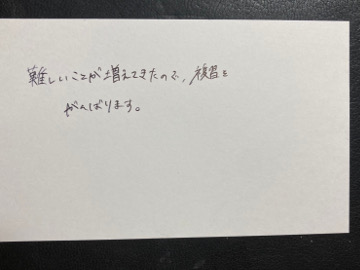 難しいことが増えてきたので、復習を
がんばります。